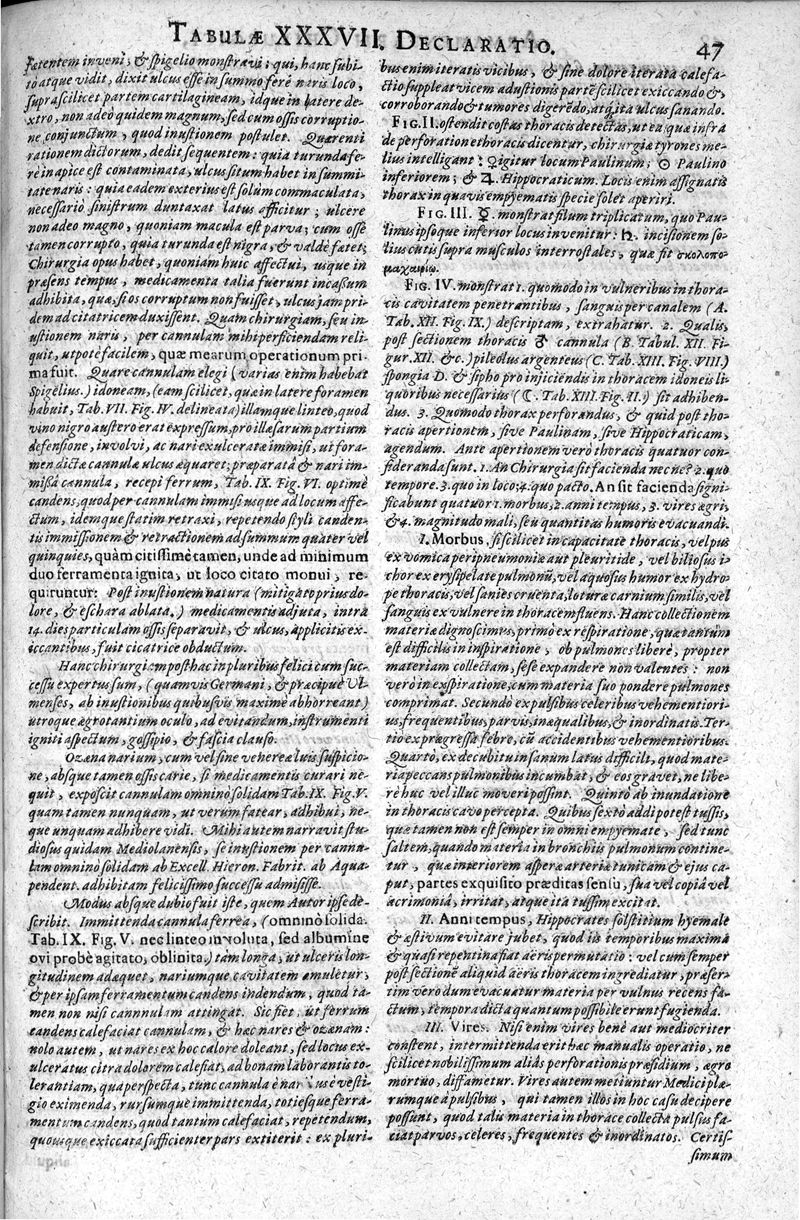 TABULÆ XXXVII. DECLARATIO. 47
fætentem inveni; & spigelio monstravi; qui, hanc subi-
tò atque vidit, dixit ulcus esse in summo ferè naris loco,
supra scilicet partem cartilagineam, idque in latere de-
xtro, non adeo quidem magnum, sed cum ossis corruptio-
ne conjunctum, quod inustionem postulet. Quærenti
rationem dictorum, dedit sequentem: quia turunda fe-
re in apice est contaminata, ulcus situm habet in summi-
tate naris: quia eadem exterius est solùm commaculata,
necessario sinistrum duntaxat latus afficitur; ulcere
non adeo magno, quoniam macula est parva; cum osse
tamen corrupto, quia turunda est nigra, & valdè fætet;
Chirurgia opus habet, quoniam huic affectui, usque in
præsens tempus, medicamenta talia fuerunt incassum
adhibita, quæ, si os corruptum non fuisset, ulcus jam pri-
dem ad citatricem duxissent. Quam chirurgiam, seu in-
ustionem naris, per cannulam mihi perficiendam reli-
quit, utpotè facilem, quæ mearum operationum pri-
ma fuit. Quare cannulam elegi (varias enim habebat
Spigelius.) idoneam, (eam scilicet, quæ in latere foramen
habuit, Tab. VII. Fig. IV. delineata) illamque linteo, quod
vino nigro austero erat expressum, pro illæsarum partium
defensione, involvi, ac nari exulceratæ immisi, ut fora-
men dictæ cannulæ ulcus æquaret; præparatâ & nari im-
missâ cannula, recepi ferrum, Tab. IX. Fig. VI. optimè
candens, quod per cannulam immisi usque ad locum affe-
ctum, idemque statim retraxi, repetendo styli canden-
tis immissionem & retractionem ad summum quater vel
quinquies, quàm citissimè tamen, unde ad minimum
duo ferramenta ignita, ut loco citato monui, re-
quiruntur: Post inustionem natura (mitigato prius do-
lore, & eschara ablata.) medicamentis adjuta, intrà
14. dies particulam ossis separavit, & ulcus, applicitis ex-
iccantibus, fuit cicatrice obductum.
Hanc chirurgiam posthac in pluribus felici cum suc-
cessu expertus sum, (quamvis Germani, & præcipuè Ul-
menses, ab inustionibus quibusvis maximè abhorreant)
utroque ægrotantium oculo, ad evitandum, instrumenti
igniti aspectum, gossipio, & fascia clauso.
Ozæna narium, cum vel sine venereæ luis suspicio-
ne, absque tamen ossis carie, si medicamentis curari ne-
quit, exposcit cannulam omninò solidam Tab. IX. Fig. V.
quam tamen nunquam, ut verum fatear, adhibui, ne-
que unquam adhibere vidi. Mihi autem narravit stu-
diosus quidam Mediolanensis, se inustionem per cannu-
lam omninò solidam ab Excell. Hieron. Fabrit. ab Aqua-
pendent. adhibitam felicissimo successu admisisse.
Modus absque dubio fuit iste, quem Autor ipse de-
scribit. Immittenda cannula ferrea, (omninò solida.
Tab. IX. Fig. V. nec linteo involuta, sed albumine
ovi probè agitato, oblinita.) tam longa, ut ulceris lon-
gitudinem adæquet, nariumque cavitatem æmuletur,
& per ipsam ferramentum candens indendum, quod ta-
men non nisi cannnulam attingat. Sic fiet, ut ferrum
candens calefaciat cannulam, & hæc nares & ozænam:
nolo autem, ut nares ex hoc calore doleant, sed locus ex-
ulceratus citra dolorem calefiat, ad bonam laborantis to-
lerantiam, qua perspecta, tunc cannula è naribus è vesti-
gio eximenda, rursumque immittenda, totiesque ferra-
mentum candens, quod tantum calefaciat, repetendum,
quousque exiccata sufficienter pars extiterit: ex pluri-
bus enim iteratis vicibus, & sine dolore iterata calefa-
ctio suppleat vicem adustionis partẽ scilicet exiccando &,
corroborando & tumores digerẽdo, atq; ita ulcus sanando.
FIG. II. ostendit costas thoracis detectas, ut ea quæ infra
de perforatione thoracis dicentur, chirurgiæ tyrones me-
lius intelligant: ♀ igitur locum Paulinum; ☉ Paulino
inferiorem; & ♃. Hippocraticum. Locis enim assignatis
thorax in quavis empyematis specie solet aperiri.
FIG. III. ☿. monstrat filum triplicatum, quo Pau-
linus ipsoque inferior locus invenitur: ♄. incisionem so-
lius cutis supra musculos interrostales, quæ fit σκολοπο-
μαχαιρίῳ.
FIG. IV. monstrat 1. quomodo in vulneribus in thora-
cis cavitatem penetrantibus, sanguis per canalem (A.
Tab. XII. Fig. IX.) descriptam, extrahatur. 2. Qualis,
post sectionem thoracis ♂ cannula (B. Tabul. XII. Fi-
gur. XII. &c.) pileolus argenteus (C. Tab. XIII. Fig. VIII.)
spongia D. & sipho pro injiciendis in thoracem idoneis li-
quoribus necessarius (☾. Tab. XIII. Fig. II.) sit adhiben-
dus. 3. Quomodo thorax perforandus, & quid post tho-
racis apertionem, sive Paulinam, sive Hippocraticam,
agendum. Ante apertionem verò thoracis quatuor con-
sideranda sunt. 1. An Chirurgia sit facienda necne? 2. quo
tempore. 3. quo in loco: 4. quo pacto. An sit facienda signi-
ficabunt quatuor 1. morbus, 2. anni tempus, 3. vires ægri,
& 4. magnitudo mali, seu quantitas humoris evacuandi.
I. Morbus, si scilicet in capacitate thoracis, vel pus
ex vomica peripneumoniæ aut pleuritide, vel biliosus i-
chor ex erysipelate pulmonũ, vel aquosus humor ex hydro-
pe thoracis, vel sanies cruenta, loturæ carnium similis, vel
sanguis ex vulnere in thoracem fluens. Hanc collectionem
materiæ dignoscimus, primò ex respiratione, quæ tantum
est difficilis in inspiratione, ob pulmones liberè, propter
materiam collectam, sese expandere non valentes: non
verò in exspiratione, cum materia suo pondere pulmones
comprimat. Secundò expulsibus celeribus vehementiori-
us, frequentibus, parvis, inæqualibus, & inordinatis. Ter-
tio ex prægressa febre, cũ accidentibus vehementioribus.
Quartò, ex decubitu in sanum latus difficili, quod mate-
ria peccans pulmonibus incumbat, & eos gravet, ne libe-
rè huc vel illuc moveri possint. Quintò ab inundatione
in thoracis cavo percepta. Quibus sextò addi potest tussis,
quæ tamen non est semper in omni empyemate, sed tunc
saltem, quando materia in bronchiis pulmonum contine-
tur, quæ interiorem asperæ arteriæ tunicam & ejus ca-
put, partes exquisito præditas sensu, sua vel copiâ vel
acrimoniâ, irritat, atque ita tussim excitat.
II. Anni tempus, Hippocrates solstitium hyemale
& æstivum evitare jubet, quod iis temporibus maxima
& quasi repentina fiat aëris permutatio: vel cum semper
post sectionẽ aliquid aëris thoracem ingrediatur, præser-
tim vero dum evacuatur materia per vulnus recens fa-
ctum, tempora dicta quantum possibile erunt fugienda.
III. Vires. Nisi enim vires benè aut mediocriter
constent, intermittenda erit hæc manualis operatio, ne
scilicet nobilissimum aliâs perforationis præsidium, ægro
mortuo, diffametur. Vires autem metiuntur Medici plæ-
rumque à pulsibus, qui tamen illos in hoc casu decipere
possunt, quod talis materia in thorace collecta pulsus fa-
ciat parvos, celeres, frequentes & inordinatos. Certis-
simum